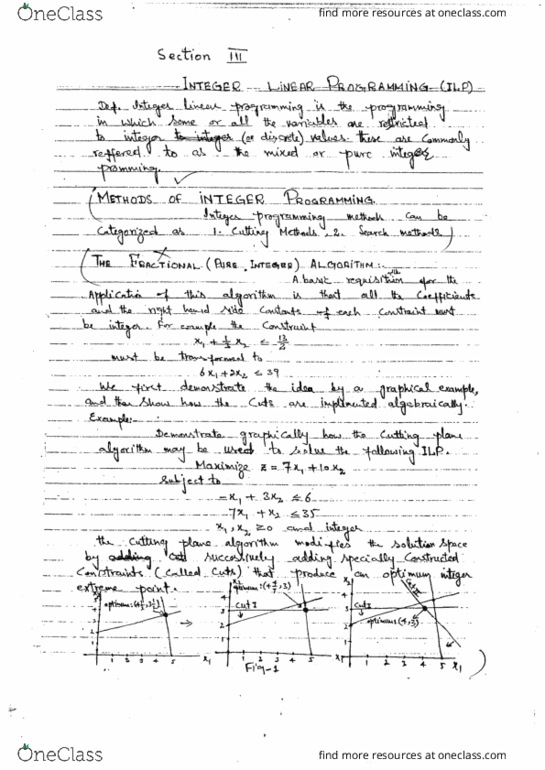 OneClass
find more resources at oneclass.com
Section III
INTEGER LINEAR PROGRAMMING (ILP)
Def. Integer linear programming is the programming
in which some or all the variables are restricted
to integer to integer (or discrete) values. these are commonly
reffered to as the mixed or pure integer
promming.
METHODS OF INTEGER PROGRAMMING.
Integer programming methods can be
Categorized as 1. Cutting Methods 2. Search methods
THE FRACTIONAL (PURE INTEGER) ALGORITHM:
A basic requisition for the
Application of this algorithm is that all the Coefficients
and the right hand side Contants of each constraint must
be integer. For example the Constraint
x₁ + 1/3 x₂ ≤ 13/2
must be transformed to
6x₁+2x₂ ≤ 39
We first demonstrate the idea by a graphical example,
and then show how the Cuts are implimented algebraically.
Example:
Demonstrate graphically how the Cutting plane
algorithm may be used to solve the following ILP.
Maximize z = 7x₁+10x₂
Subject to
-x₁ + 3x₂ ≤ 6
7x₁ + x₂ ≤ 35
x₁, x₂ ≥ 0 and integer
the cutting plane algorithm modifies the solution space
by adding successively adding specially Constructed
Constraints (called Cuts) that produce an optimum integer
extreme point.
optimum:(4 1/2, 3 1/2) optimum:(4 4/7, 3) Cut II
Cut I Cut I optimum (4,3)
1 2 3 4 5 x₁ 1 2 3 4 5 x₁ 1 2 3 4 5 x₁
Fig-1
OneClass
find more resources at oneclass.com